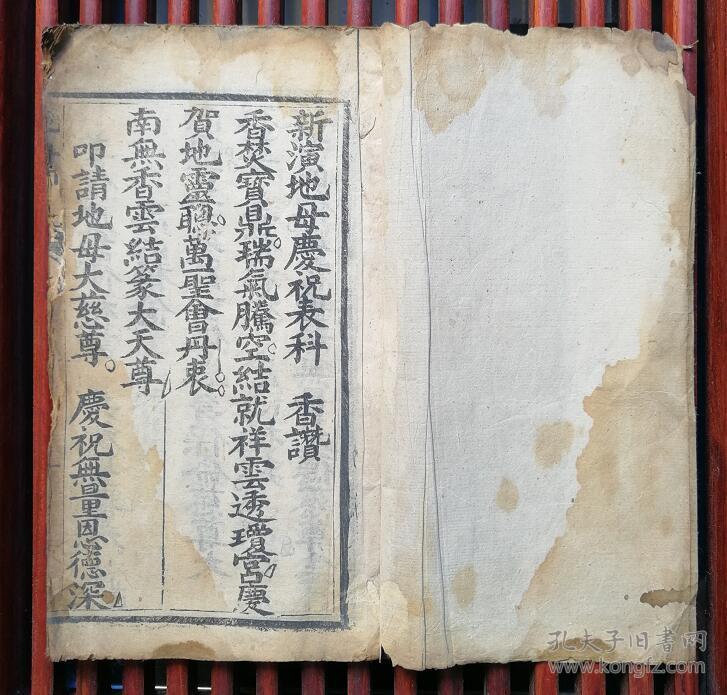 新演地母慶祝表科　香讚
香焚寳鼎。瑞氣騰空。結就祥雲透瓊宮。慶
賀地靈聰。萬聖會丹衷。
南無香雲結篆大天尊
叩請地母大慈尊。慶祝無量恩德深
孔夫子旧书网
www.kongfz.com